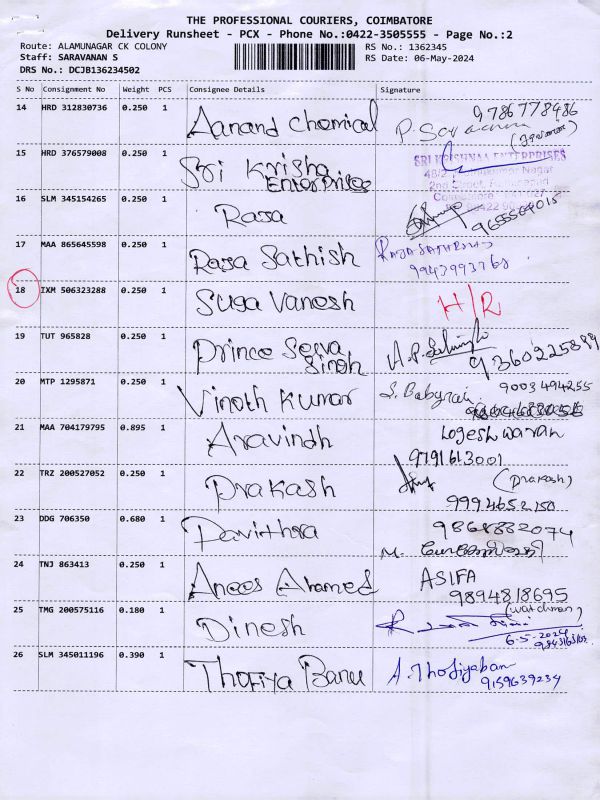 THE PROFESSIONAL COURIERS, COIMBATORE
Delivery Runsheet - PCX - Phone No.:0422-3505555 - Page No.:2
Route: ALAMUNAGAR CK COLONY
Staff: SARAVANAN S
DRS No.: DCJB136234502
RS No.: 1362345
RS Date: 06-May-2024
S No Consignment No Weight PCS Consignee Details Signature
14 HRD 312830736 0.250 1 Aanand Chemical 9786778486
15 HRD 376579008 0.250 1 Sri Krisha Enterprises
SRI KRISHNAA ENTERPRISES
16 SLM 345154265 0.250 1 Rasa
17 MAA 865645598 0.250 1 Rasa Sathish
9943993768
18 IXM 506323288 0.250 1 Susa Vanesh H/R
19 TUT 965828 0.250 1 Prince Selva Singh 9360225889
20 MTP 1295871 0.250 1 Vinoth Kumar S. Babyrai 9003494255
21 MAA 704179795 0.895 1 Aravindh Logeshwaran
9791613001
22 TRZ 200527052 0.250 1 Prakash (prakash)
9994652150
23 DDG 706350 0.680 1 Pavithra 9868832074
24 TNJ 863413 0.250 1 Anees Ahamed ASIFA
9894818695
25 TMG 200575116 0.180 1 Dinesh (watchman)
6-5-2024
26 SLM 345011196 0.390 1 Thofiya Banu A. Thofiyaban
9159639234